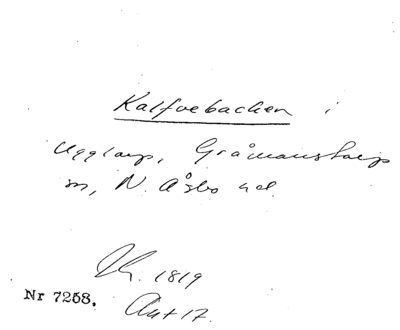 Kalfvebacken i
Ugglarp, Gråmanstorps
sn, N. Åsbo hd.
1819
Nr 7258. Akt 17.